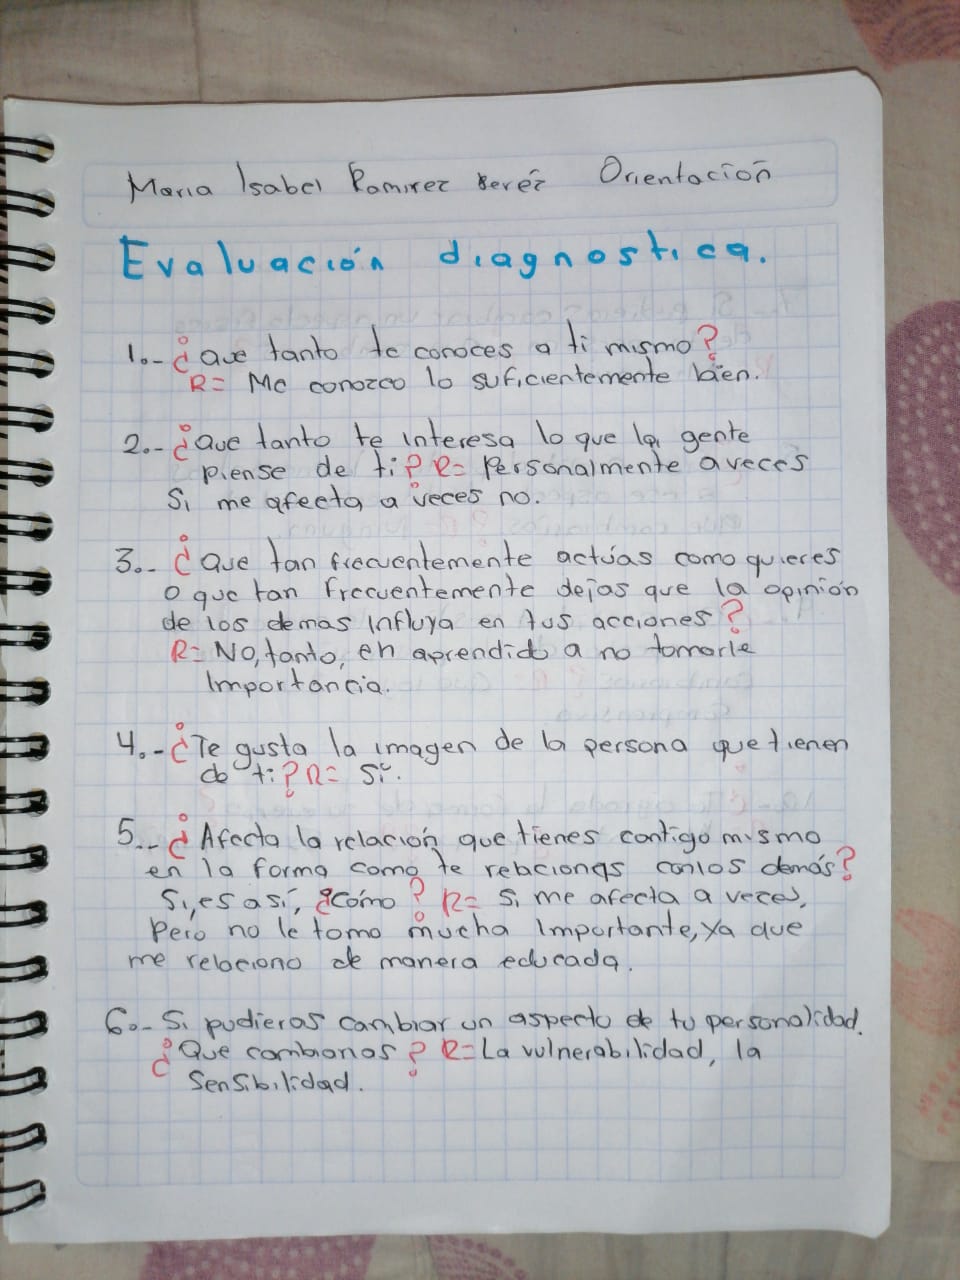 Maria Isabel Ramirez Orientación
Evaluación diagnostica.
1.- ¿Que tanto te conoces a ti mismo?
R= Me conozco lo suficientemente bien.
2.- ¿Que tanto te interesa lo que la gente
piense de ti? R= Personalmente aveces
Si me afecta a veces no.
3.- ¿Que tan frecuentemente actúas como quieres
o que tan frecuentemente dejas que la opinión
de los demas influya en tus acciones?
R= No, tanto, eh aprendido a no tomarle
Importancia.
4.- ¿Te gusta la imagen de la persona que tienen
de ti? R= Si.
5.- ¿Afecta la relación que tienes contigo mismo
en la forma como te relacionas con los demás?
Si, es así, ¿cómo? R= Si me afecta a veces,
Pero no le tomo mucha Importante, ya que
me relaciono de manera educada.
6.- Si pudieras cambiar un aspecto de tu personalidad.
¿Que cambiarias? R= La vulnerabilidad, la
Sensibilidad.